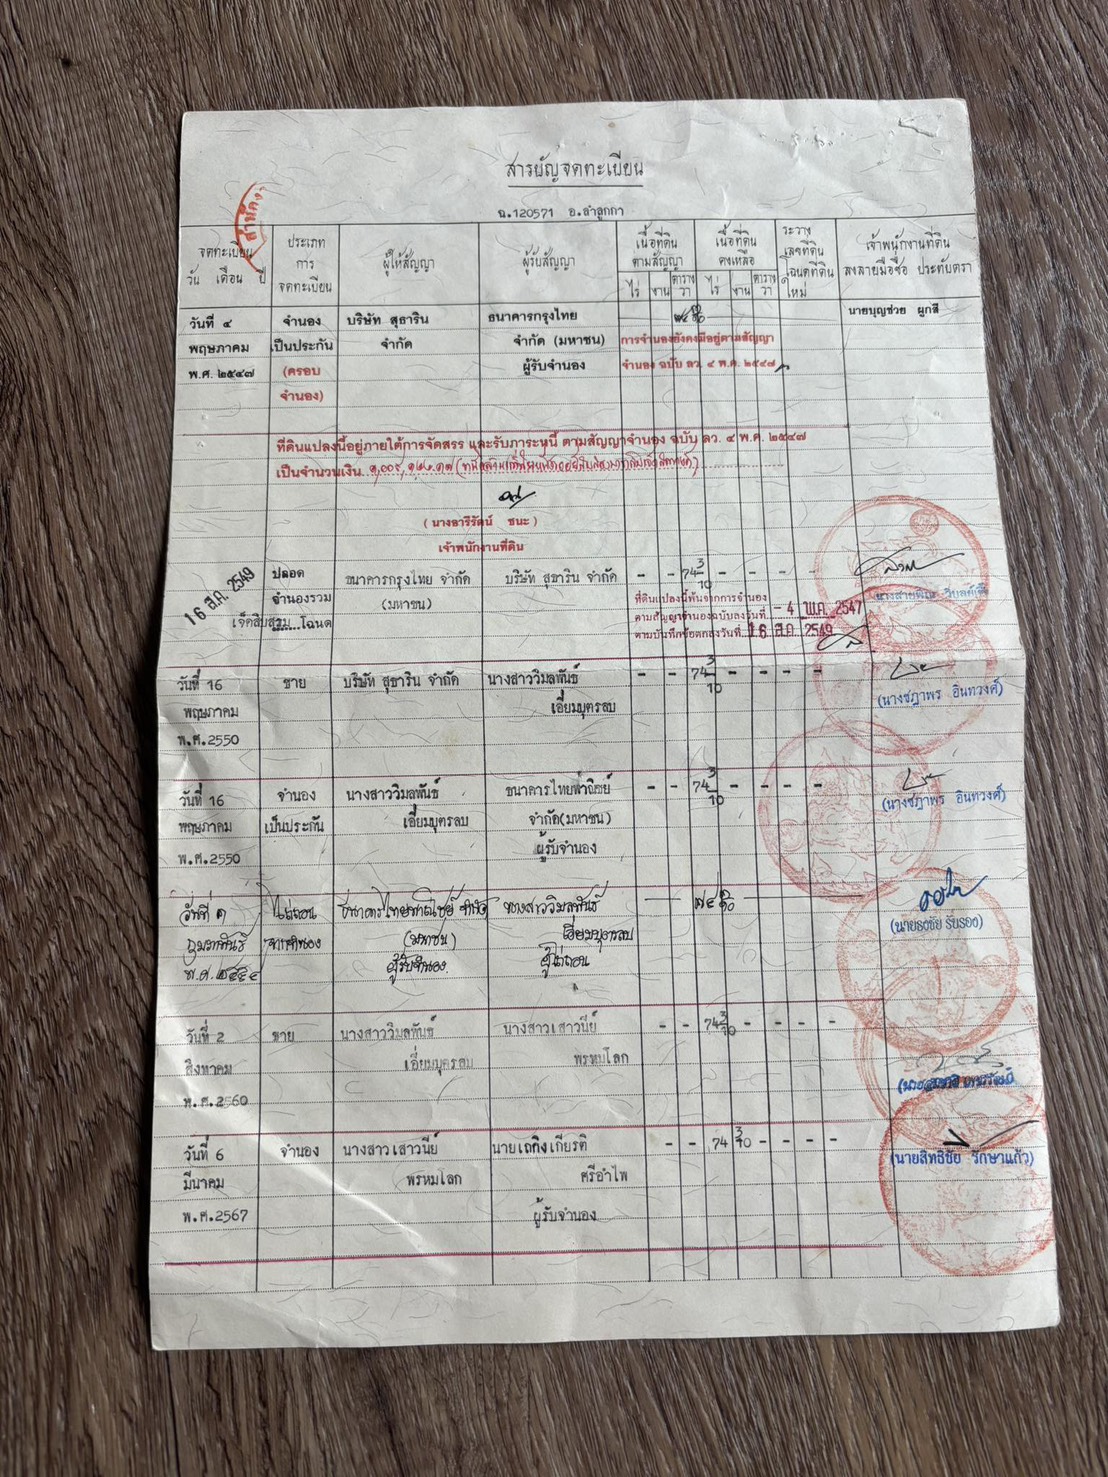 สารบัญจดทะเบียน
ฉ.120571 อ.ลำลูกกา
จดทะเบียน วัน เดือน ปี
ประเภทการจดทะเบียน
ผู้ให้สัญญา
ผู้รับสัญญา
เนื้อที่ดินตามสัญญา
ไร่ งาน ตารางวา
เนื้อที่ดินคงเหลือ
ไร่ งาน ตารางวา
ระวาง เลขที่ดิน โฉนดที่ดินใหม่
เจ้าพนักงานที่ดิน ลงลายมือชื่อ ประทับตรา
วันที่ ๔ จำนอง บริษัท สุธาริน ธนาคารกรุงไทย นายบุญช่วย ผูกสี
พฤษภาคม เป็นประกัน จำกัด จำกัด (มหาชน) การจำนองยังคงมีอยู่ตามสัญญา
พ.ศ. ๒๕๔๗ (ครอบ ผู้รับจำนอง จำนอง ฉบับ ลว. ๔ พ.ค. ๒๕๔๗
จำนอง)
ที่ดินแปลงนี้อยู่ภายใต้การจัดสรร และรับภาระหนี้ ตามสัญญาจำนอง ฉบับ ลว. ๔ พ.ค. ๒๕๔๗
เป็นจำนวนเงิน
(นางอารีรัตน์ ชนะ)
เจ้าพนักงานที่ดิน
16 ส.ค. 2549 ปลอด ธนาคารกรุงไทย จำกัด บริษัท สุธาริน จำกัด - - 74 3/10 - - - -
จำนองรวม (มหาชน) ที่ดินแปลงนี้พ้นจากการจำนอง
เจ็ดสิบสาม โฉนด ตามสัญญาจำนองฉบับลงวันที่ - 4 พ.ค. 2547
ตามบันทึกข้อตกลงวันที่ 16 ส.ค. 2549
วันที่ 16 ขาย บริษัท สุธาริน จำกัด นางสาววิมลพันธ์ - - 74 3/10 - - - -
พฤษภาคม เอี่ยมบุตรลบ (นางชฎาพร อินทวงศ์)
พ.ศ.2550
วันที่ 16 จำนอง นางสาววิมลพันธ์ ธนาคารไทยพาณิชย์ - - 74 3/10 - - - -
พฤษภาคม เป็นประกัน เอี่ยมบุตรลบ จำกัด(มหาชน) (นางชฎาพร อินทวงศ์)
พ.ศ.2550 ผู้รับจำนอง
วันที่ ๑ ไถ่ถอน ธนาคารไทยพาณิชย์ จำกัด นางสาววิมลพันธ์ ๗๔ ๓/๑๐
กุมภาพันธ์ จากจำนอง (มหาชน) เอี่ยมบุตรลบ (นายธงชัย รับรอง)
พ.ศ. ๒๕๕๔ ผู้รับจำนอง ผู้ไถ่ถอน
วันที่ 2 ขาย นางสาววิมลพันธ์ นางสาวเสาวนีย์ - - 74 3/10 - - - -
สิงหาคม เอี่ยมบุตรลบ พรหมโลก
พ.ศ.2560
วันที่ 6 จำนอง นางสาวเสาวนีย์ นายเถกิงเกียรติ - - 74 3/10 - - - -
มีนาคม พรหมโลก ศรีอำไพ (นายสิทธิชัย รักษาแก้ว)
พ.ศ.2567 ผู้รับจำนอง